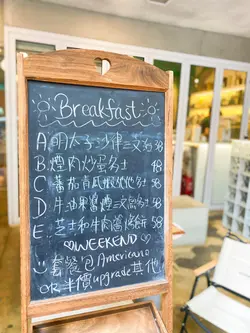 Breakfast
A 明太子沙律三文治 58
B. 煙肉炒蛋多士 48
C 蕃茄青瓜多士 58
D 牛油果三文治 58
E 芝士和牛肉醬 58
WEEKEND
套餐包Americano
OR 半價upgrade其他